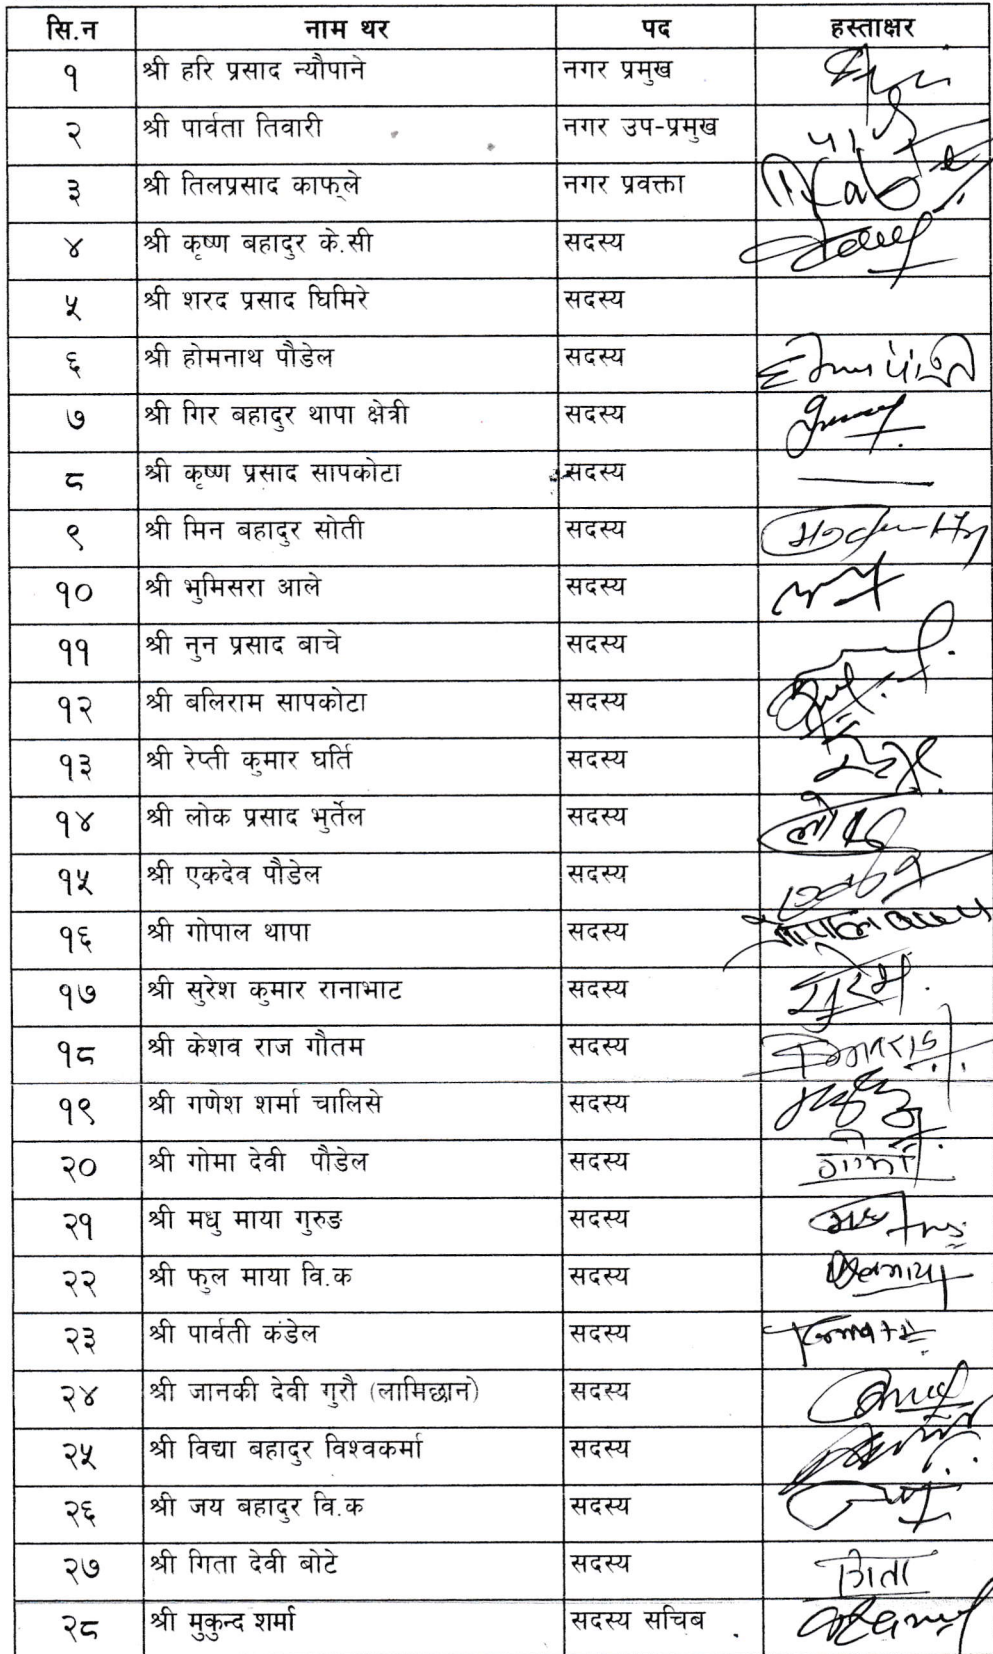 सि.न नाम थर पद हस्ताक्षर
१ श्री हरि प्रसाद न्यौपाने नगर प्रमुख
२ श्री पार्वता तिवारी नगर उप-प्रमुख
३ श्री तिलप्रसाद काफ्ले नगर प्रवक्ता
४ श्री कृष्ण बहादुर के.सी सदस्य
५ श्री शरद प्रसाद घिमिरे सदस्य
६ श्री होमनाथ पौडेल सदस्य
७ श्री गिर बहादुर थापा क्षेत्री सदस्य
८ श्री कृष्ण प्रसाद सापकोटा सदस्य
९ श्री मिन बहादुर सोती सदस्य
१० श्री भुमिसरा आले सदस्य
११ श्री नुन प्रसाद बाचे सदस्य
१२ श्री बलिराम सापकोटा सदस्य
१३ श्री रेप्ती कुमार घर्ति सदस्य
१४ श्री लोक प्रसाद भुर्तेल सदस्य
१५ श्री एकदेव पौडेल सदस्य
१६ श्री गोपाल थापा सदस्य
१७ श्री सुरेश कुमार रानाभाट सदस्य सुरेश
१८ श्री केशव राज गौतम सदस्य
१९ श्री गणेश शर्मा चालिसे सदस्य
२० श्री गोमा देवी पौडेल सदस्य गोमा
२१ श्री मधु माया गुरुङ सदस्य
२२ श्री फुल माया वि.क सदस्य
२३ श्री पार्वती कंडेल सदस्य
२४ श्री जानकी देवी गुरौ (लामिछाने) सदस्य
२५ श्री विद्या बहादुर विश्वकर्मा सदस्य
२६ श्री जय बहादुर वि.क सदस्य
२७ श्री गिता देवी बोटे सदस्य गिता
२८ श्री मुकुन्द शर्मा सदस्य सचिब